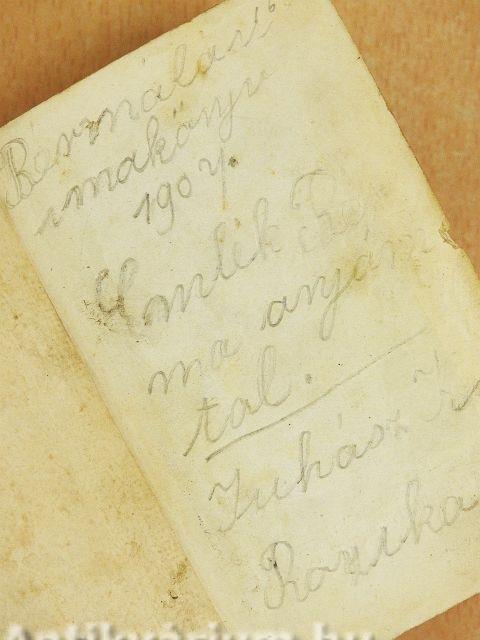 Bérmálási
imakönyv
190
Emlék
ma anyám
tal.
Juhász
Rozika
Antikvárium.hu